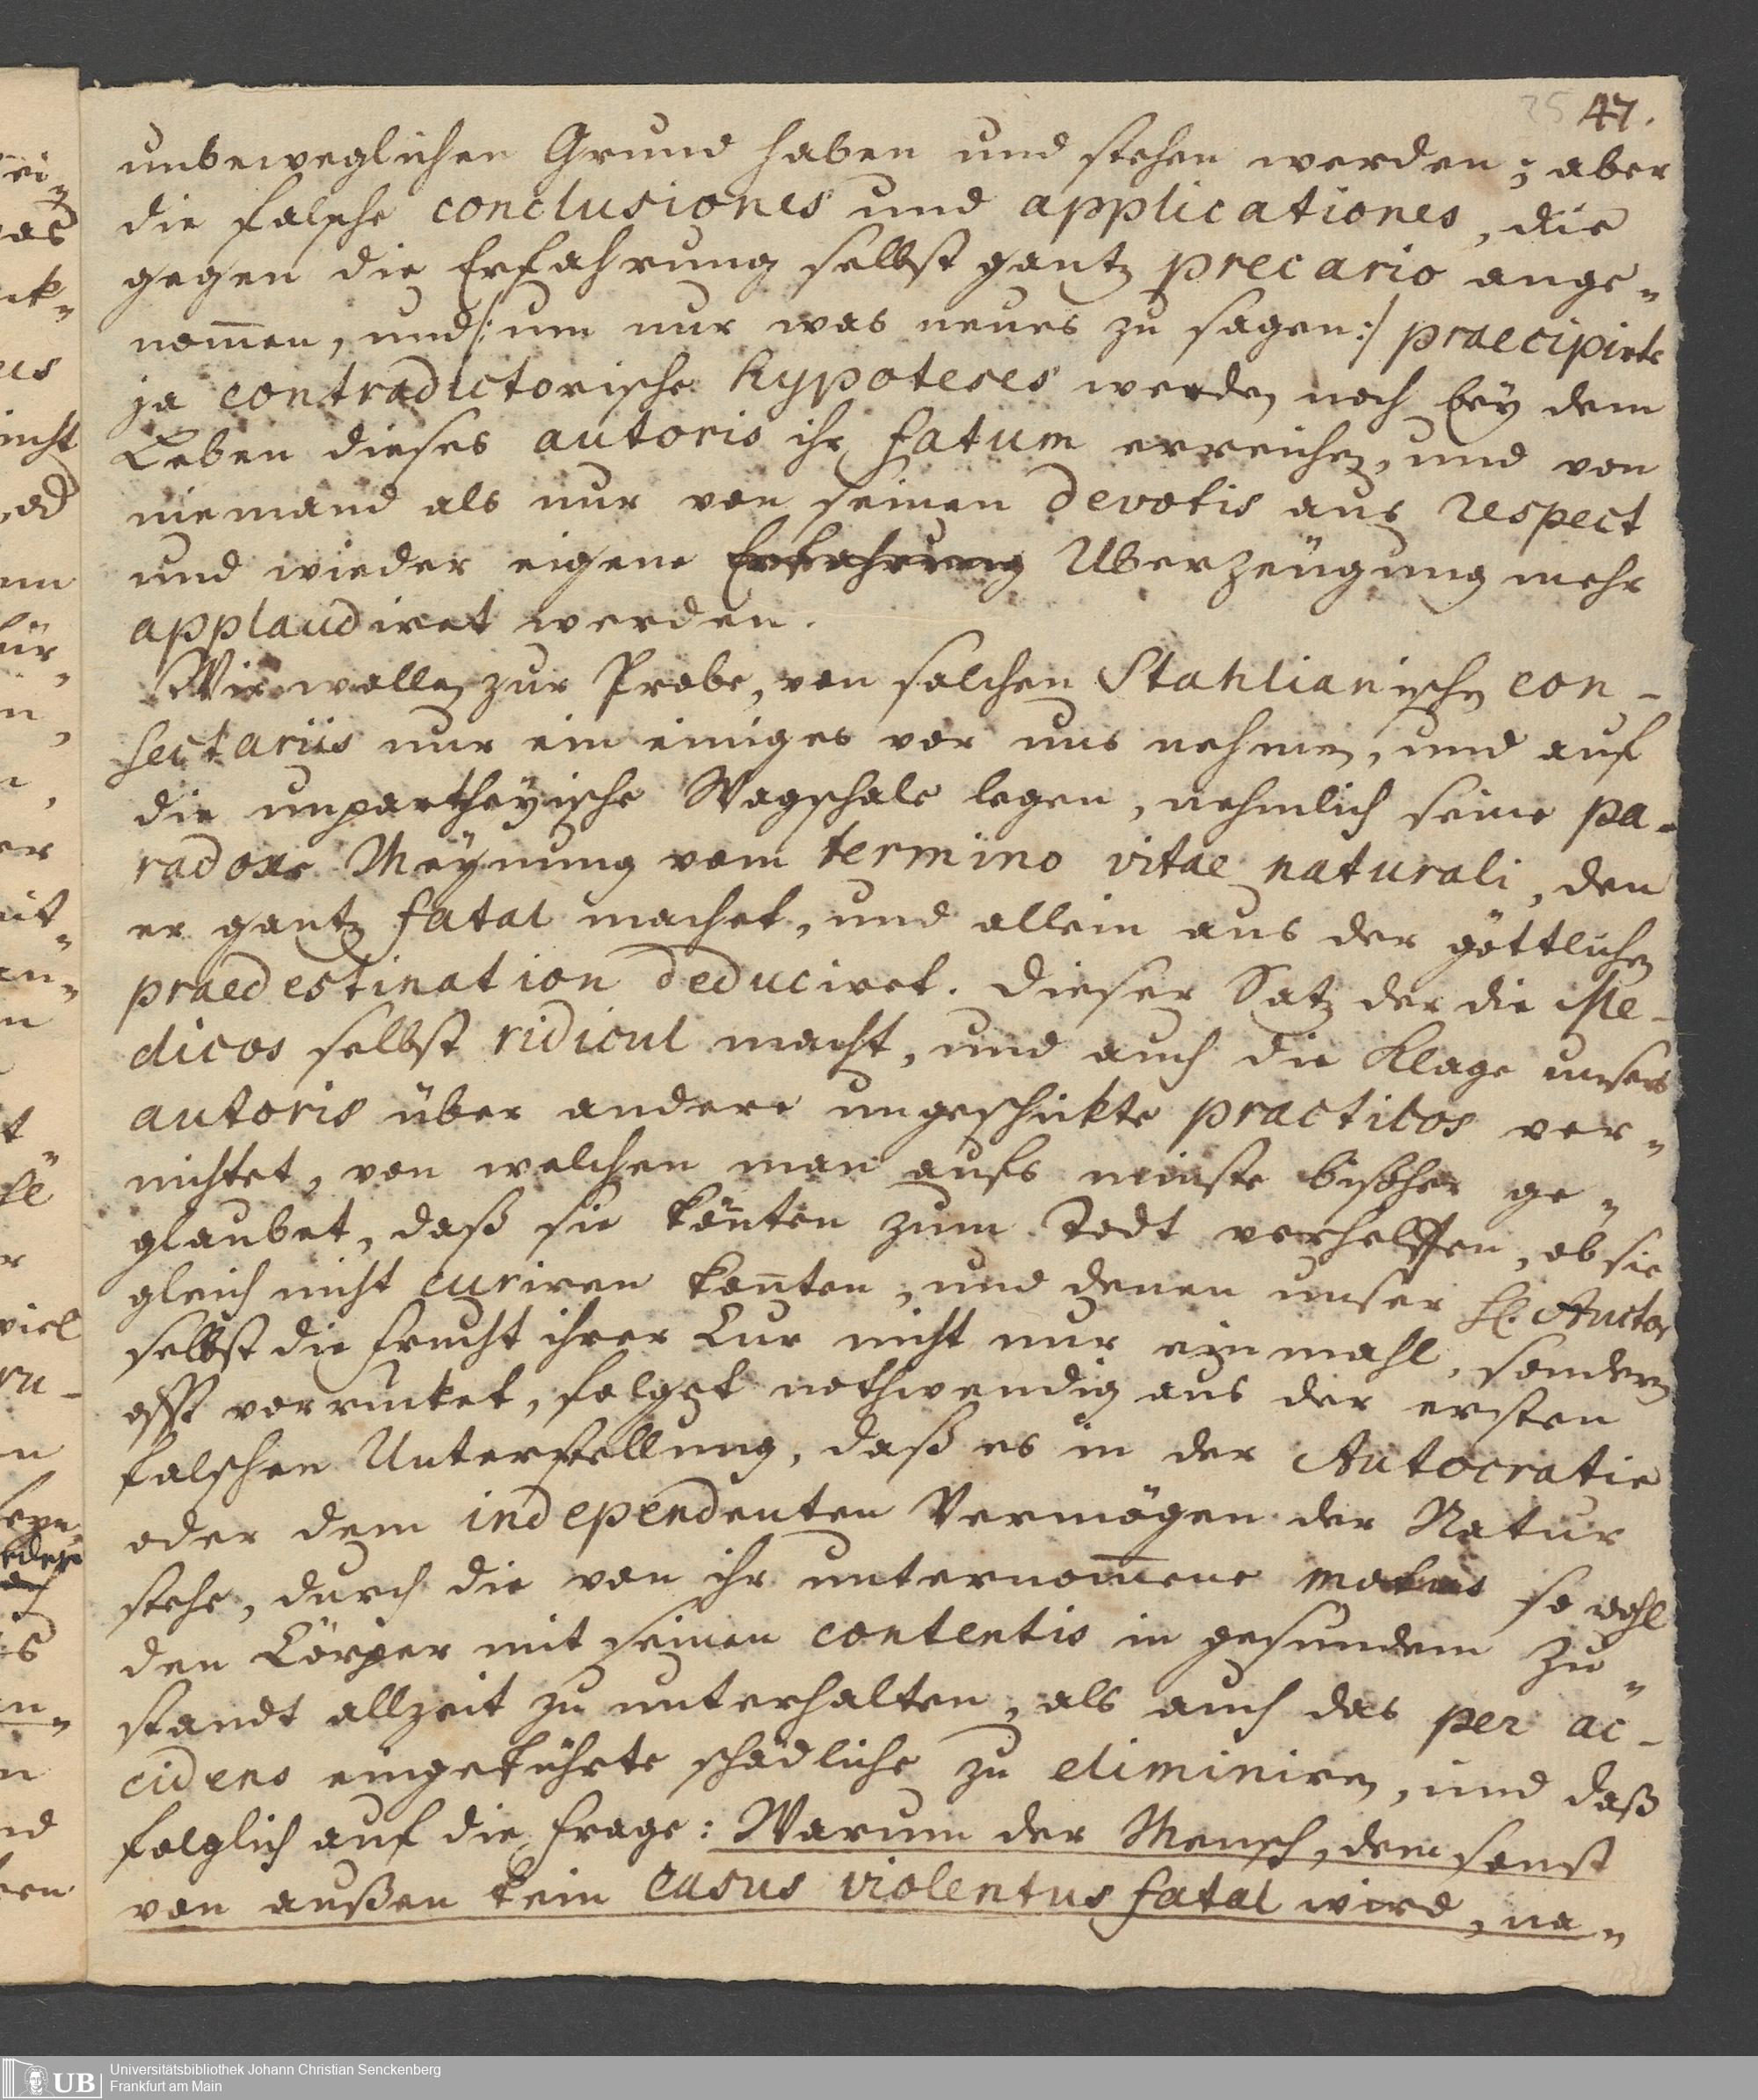 35 47.
unbeweglichen Grund haben und stehen werden; aber
die falsche conclusiones und applicationes, die
gegen die Erfahrung selbst gantz precario ange„
nom̄en, und /: um nur was neues zu sagen :/ praecipirte
ja contradictorische hypoteses werden noch bey dem
Leben dieses autoris ihr fatum erreichen, und von
niemand als nur von seinen devotis aus respect
und wieder eigene Erfahrung Uberzeügung mehr
applaudiret werden.
Wir wollen zur Probe, von solchen Stahlianischen con-
sectariis nur ein einiges vor uns nehmen, und auf
die unpartheyische Wagschale legen, nehmlich seine pa-
radoxe Meynung vom termino vitae naturali, den
er gantz fatal machet, und allein aus der göttlichen
praedestination deduciret. Dieser Satz der die Me-
dicos selbst ridicul macht, und auch die Klage unsers
autoris über andere ungeschickte practicos ver„
nichtet, von welchen man aufs minste bißher ge„
glaubet, daß sie kön̄ten zum Todt verhelffen, ob sie
gleich nicht curiren kon̄ten, und denen unser H. Auctor
selbst die Frucht ihrer Cur nicht nur einmahl, sondern
offt vorrucket, folget nothwendig aus der ersten
falschen Unterstellung, daß es in der Autocratie
oder dem independenten Vermögen der Natur
stehe, durch die von ihr unternom̄ene motus so wohl
den Cörper mit seinen contentis in gesundem Zu„
standt allzeit zu unterhalten, als auch das per ac-
cidens eingeführte schädliche zu eliminiren, und daß
folglich auf die Frage: Warum der Mensch, dem sonst
von außen kein casus violentus fatal wird, na„
Universitätsbibliothek Johann Christian Senckenberg
Frankfurt am Main
UB